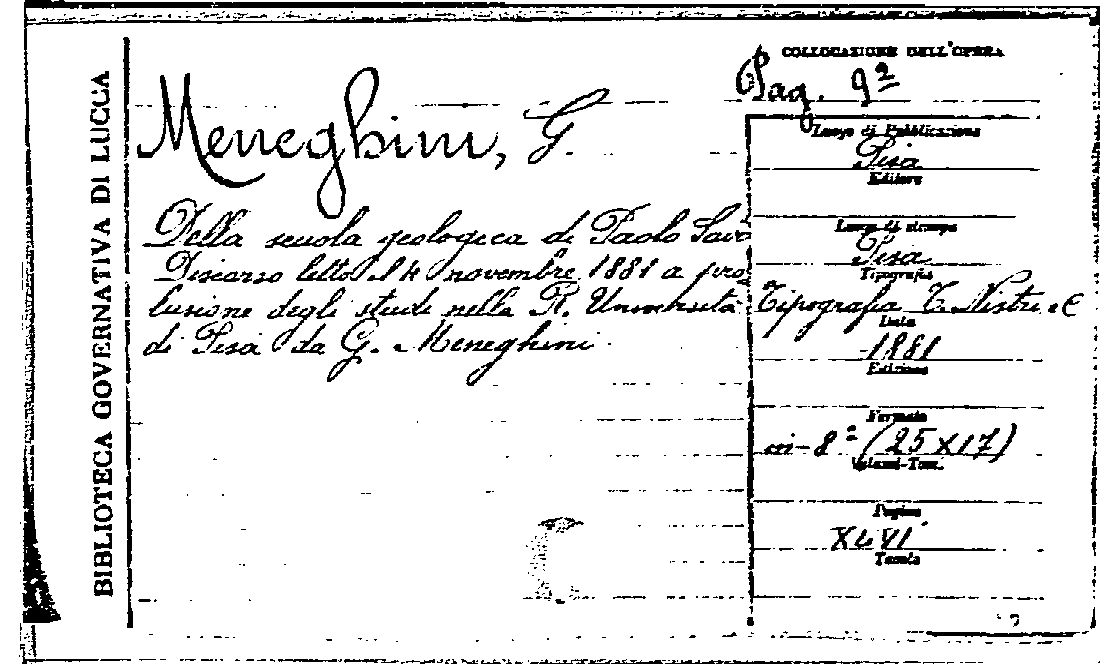 BIBLIOTECA GOVERNATIVA DI LUCCA
Meneghini, G.
Della scuola geologica di Paolo Savi
Discorso letto il 4 novembre 1881 a pro
lusione degli studi nella R. Università
di Pisa da G. Meneghini
COLLOCAZIONE DELL'OPERA
Pag. 92
Luogo di Pubblicazione
Pisa
Editore
Luogo di stampa
Pisa
Tipografia
Tipografia T. Nistri e C
Data
1881
Edizione
Formato
in-8º (25X17)
Volumi-Tom.
Pagine
XLVI
Tavole